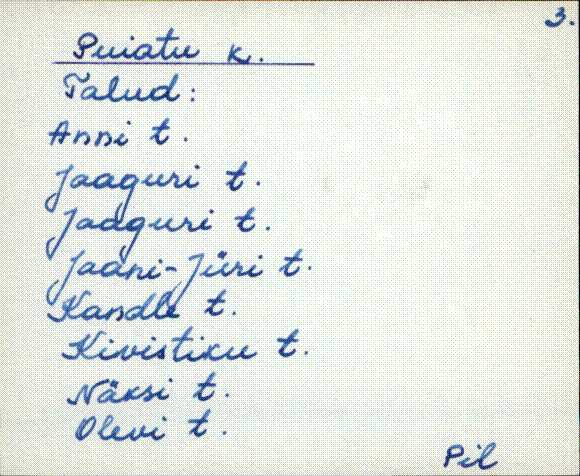 3.
Puiatu k.
Talud:
Anni t.
Jaaguri t.
Jaaguri t.
Jaani-Jüri t.
Kandle t.
Kivistiku t.
Näksi t.
Olevi t.
Pil